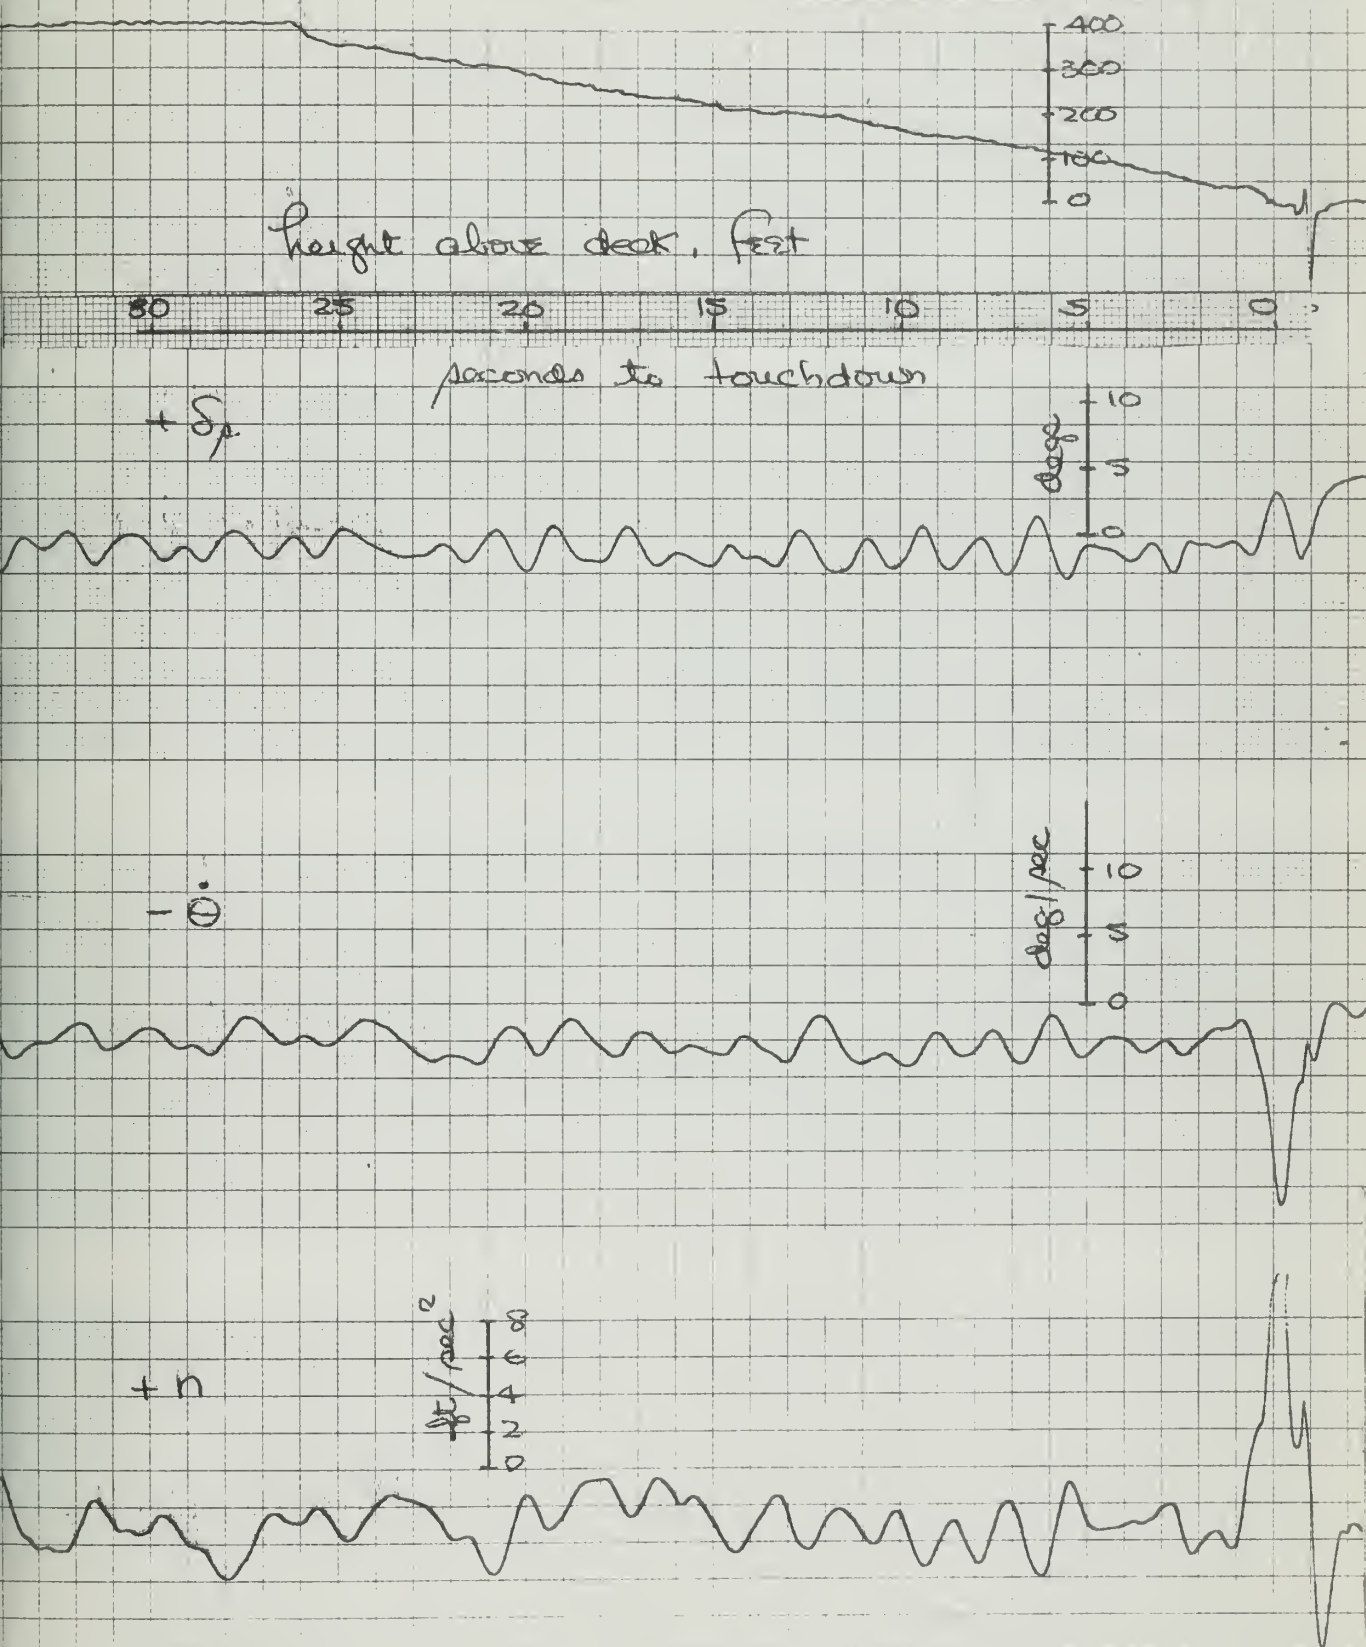 400
300
200
100
0
height above deck, feet
30 25 20 15 10 5 0
seconds to touchdown
+ δ
10
5
0
degs
- Θ̇
deg/sec
10
5
0
+ n
ft/sec²
8
6
4
2
0